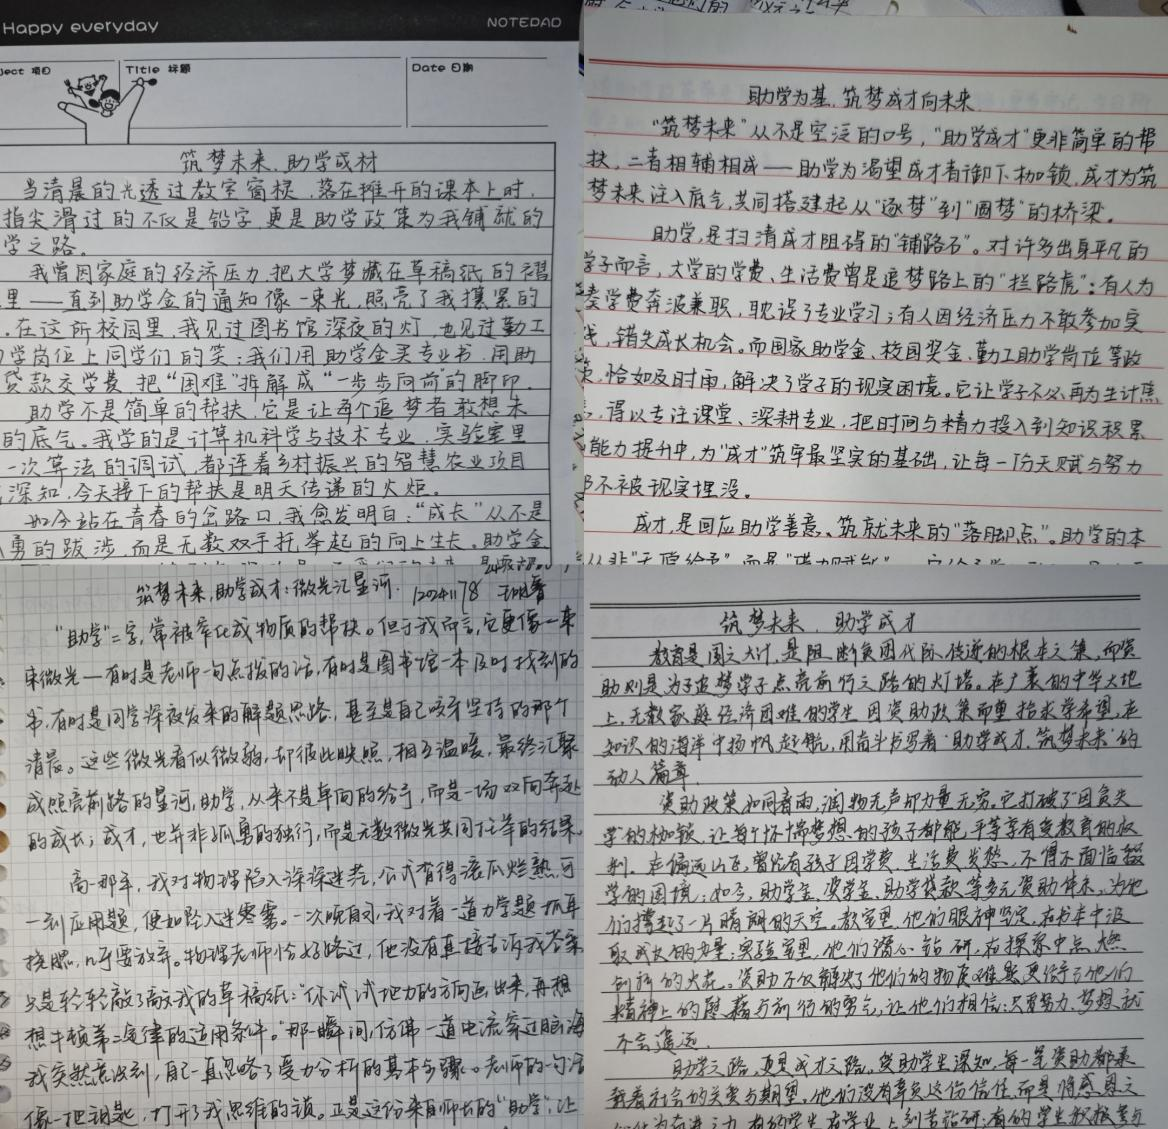 Happy everyday
NOTEPAD
ject 项目
Title 标题
Date 日期
筑梦未来、助学成材
当清晨的光透过教室窗棂,落在摊开的课本上时,
指尖滑过的不仅是铅字,更是助学政策为我铺就的
学之路。
我曾因家庭的经济压力,把大学梦藏在草稿纸的褶
里——直到助学金的通知像一束光,照亮了我攥紧的
.在这所校园里,我见过图书馆深夜的灯,也见过勤工
学岗位上同学们的笑;我们用助学金买专业书,用助
贷款交学费,把“困难”拆解成“一步步向前”的脚印。
助学不是简单的帮扶,它是让每个追梦者敢想未
的底气。我学的是计算机科学与技术专业,实验室里
一次算法的调试,都连着乡村振兴的智慧农业项目
深知,今天接下的帮扶是明天传递的火炬。
如今站在青春的岔路口,我愈发明白:“成长”从不是
勇的跋涉,而是无数双手托举起的向上生长。助学金
助学为基,筑梦成才向未来
“筑梦未来”从不是空泛的口号,“助学成才”更非简单的帮
扶,二者相辅相成——助学为渴望成才者卸下枷锁,成才为筑
梦未来注入底气,共同搭建起从“逐梦”到“圆梦”的桥梁。
助学,是扫清成才阻碍的“铺路石”。对许多出身平凡的
学子而言,大学的学费、生活费曾是追梦路上的“拦路虎”:有人为
凑学费奔波兼职,耽误了专业学习;有人因经济压力不敢参加实
践,错失成长机会。而国家助学金、校园奖金、勤工助学岗位等政
策,恰如及时雨,解决了学子的现实困境。它让学子不必再为生计焦
,得以专注课堂、深耕专业,把时间与精力投入到知识积累
能力提升中,为“成才”筑牢最坚实的基础,让每一份天赋与努力
都不被现实埋没。
成才,是回应助学善意、筑就未来的“落脚点”。助学的本
筑梦未来,助学成才:微光汇星河.
“助学”二字,常被窄化成物质的帮扶。但于我而言,它更像一束
束微光——有时是老师一句点拨的话,有时是图书馆一本及时找到的
书,有时是同学深夜发来的解题思路,甚至是自己咬牙坚持的那个
清晨。这些微光看似微弱,却彼此映照,相互温暖,最终汇聚
成照亮前路的星河,助学,从来不是单向的给予,而是一场双向奔赴
的成长;成才,也并非孤勇的独行,而是无数微光共同托举的结果。
高一那年,我对物理陷入深深迷茫,公式背得滚瓜烂熟,可
一到应用题,便如坠入迷雾。一次晚自习,我对着一道力学题抓耳
挠腮,几乎要放弃。物理老师恰好路过,他没有直接告诉我答案
只是轻轻敲了敲我的草稿纸:“你试试把力的方向画出来,再想
想牛顿第二定律的适用条件。”那一瞬间,仿佛一道电流穿过脑海
我突然意识到,自己一直忽略了受力分析的基本步骤。老师的一句话
像一把钥匙,打开了我思维的锁。正是这份来自师长的“助学”,让
筑梦未来、助学成才
教育是国之大计,是阻断贫困代际传递的根本之策,而资
助则是为了追梦学子点亮前行之路的灯塔。在广袤的中华大地
上,无数家庭经济困难的学生因资助政策而重拾求学希望,在
知识的海洋中扬帆起航,用奋斗书写着“助学成才,筑梦未来”的
动人篇章。
资助政策如同春雨,润物无声却力量无穷。它打破了因贫失
学的枷锁,让每个怀揣梦想的孩子都能平等享有受教育的权
利。在偏远山区,曾先有孩子因学费、生活费发愁,不得不面临辍
学的困境;如今,助学金、奖学金、助学贷款等多元资助体系,为他
们撑起了一片晴朗的天空。教室里,他们眼神坚定,在书本中汲
取成长的力量;实验室里,他们潜心钻研,在探索中点燃
创新的火花。资助不仅解决了他们的物质难题,更给予了他们
精神上的慰藉与前行的勇气,让他们相信:只要努力,梦想就
不会遥远。
助学之路,更是成才之路。受助学生深知,每一笔资助都承
载着社会的关爱与期望。他们没有辜负这份信任,而是将感恩之